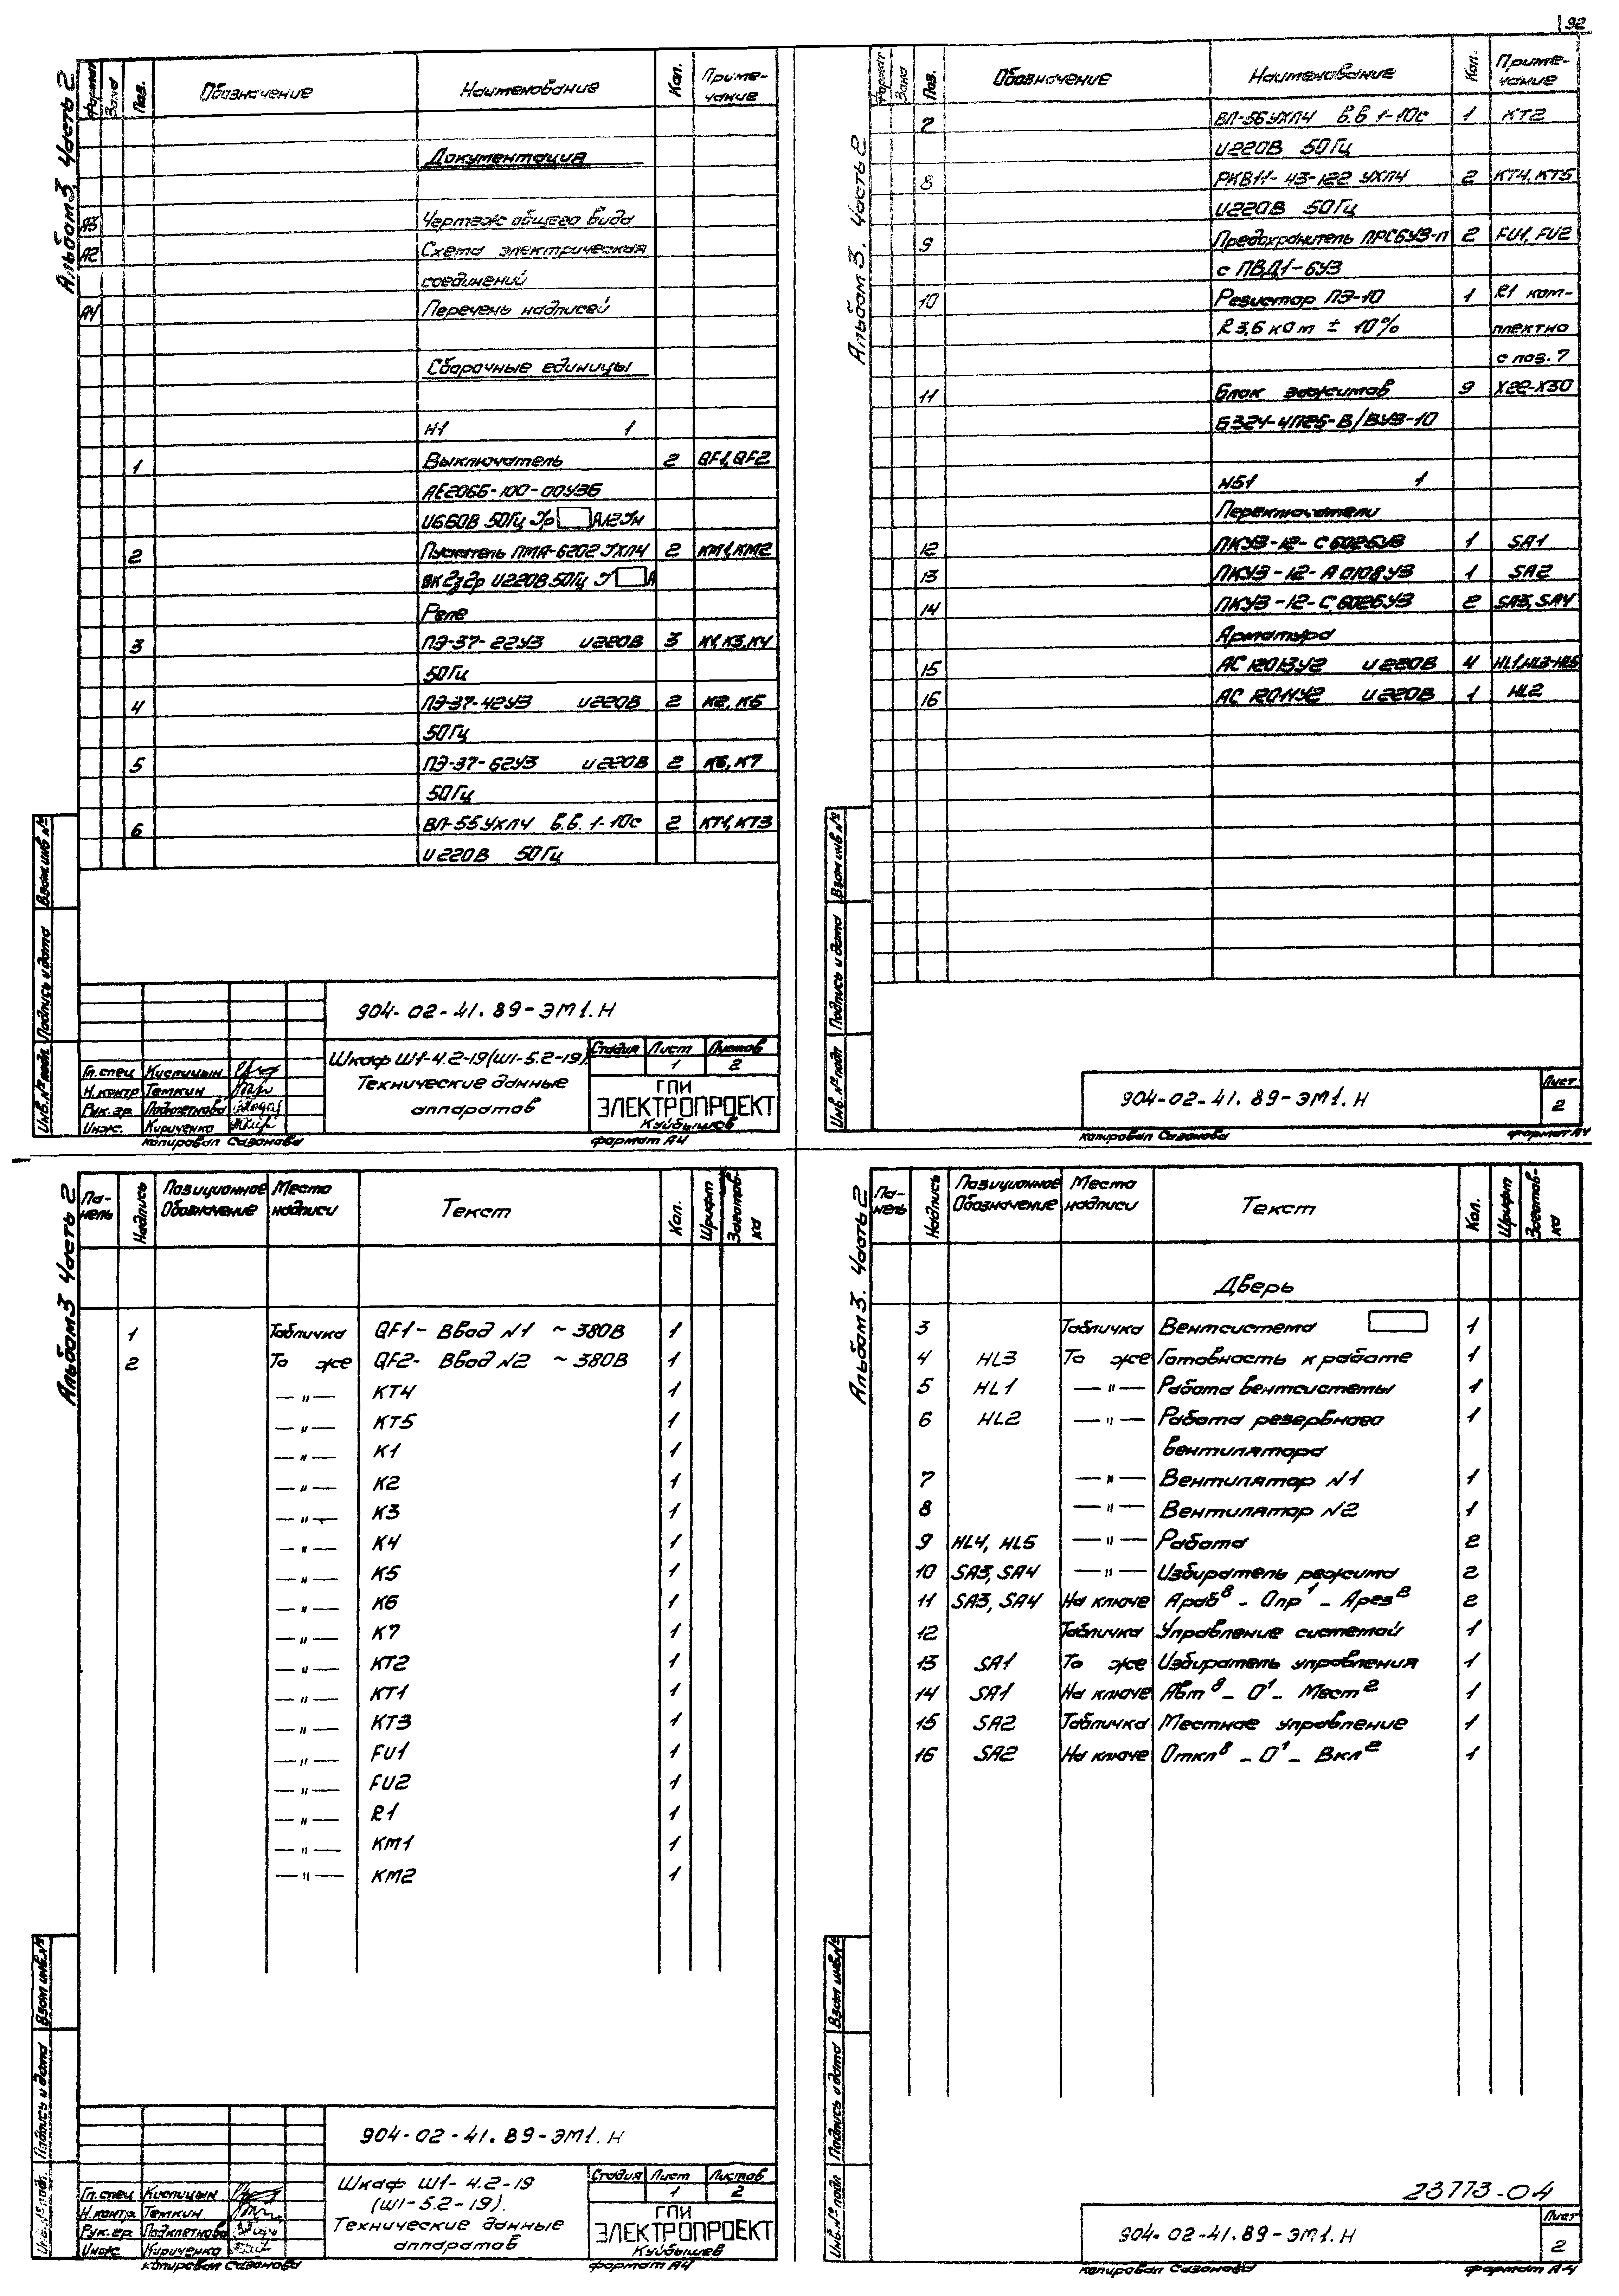 92
Альбом 3. Часть 2
Формат Зона Поз. Обозначение Наименование Кол. Примечание
Документация
А3 Чертеж общего вида
А2 Схема электрическая
соединений
А4 Перечень надписей
Сборочные единицы
Н1 1
1 Выключатель 2 QF1, QF2
АЕ2066-100-00У3Б
U660В 50Гц Jр А12Jн
2 Пускатель ПМА-6202 УХЛ4 2 КМ1, КМ2
ВК 2з2р U220В 50Гц J А
Реле
3 ПЭ-37-22У3 U220В 3 К1, К3, К4
50Гц
4 ПЭ-37-42У3 U220В 2 К2, К5
50Гц
5 ПЭ-37-62У3 U220В 2 К6, К7
50Гц
6 ВЛ-55УХЛ4 в.в. 1-10с 2 КТ1, КТ3
U220В 50Гц
904-02-41.89-ЭМ1.Н
Шкаф Ш1-4.2-19(Ш1-5.2-19).
Технические данные
аппаратов
Стадия Лист Листов
1 2
ГПИ
ЭЛЕКТРОПРОЕКТ
Куйбышев
Гл.спец Кислицын
Н.контр Темкин
Рук.гр. Подклетнова
Инж. Кириченко
Инв.№подл. Подпись и дата Взам.инв.№
копировал Сазонова формат А4
Альбом 3. Часть 2
Формат Зона Поз. Обозначение Наименование Кол. Примечание
7 ВЛ-56УХЛ4 в.в 1-10с 1 КТ2
U220В 50Гц
8 РКВ11-43-122 УХЛ4 2 КТ4, КТ5
U220В 50Гц
9 Предохранитель ПРС6У3-П 2 FU1, FU2
с ПВД1-6У3
10 Резистор ПЭ-10 1 R1 ком-
R3,6 ком ± 10% плектно
с поз. 7
11 Блок зажимов 9 Х22-Х30
БЗ24-4П25-В/ВУ3-10
НБ1 1
Переключатели
12 ПКУ3-12-С6026У3 1 SA1
13 ПКУ3-12-А0108У3 1 SA2
14 ПКУ3-12-С6026У3 2 SA3, SA4
Арматура
15 АС12013У2 U220В 4 HL1, HL3-HL5
16 АС12011У2 U220В 1 HL2
Инв.№подл Подпись и дата Взам.инв.№
904-02-41.89-ЭМ1.Н
Лист
2
копировал Сазонова формат А4
Альбом 3 Часть 2
Панель Надпись Позиционное Обозначение Место надписи Текст Кол. Шрифт Заготовка
1 Табличка QF1- Ввод N1 ~380В 1
2 То же QF2- Ввод N2 ~380В 1
—"— КТ4 1
—"— КТ5 1
—"— К1 1
—"— К2 1
—"— К3 1
—"— К4 1
—"— К5 1
—"— К6 1
—"— К7 1
—"— КТ2 1
—"— КТ1 1
—"— КТ3 1
—"— FU1 1
—"— FU2 1
—"— R1 1
—"— КМ1 1
—"— КМ2 1
904-02-41.89-ЭМ1.Н
Шкаф Ш1-4.2-19
(Ш1-5.2-19).
Технические данные
аппаратов
Стадия Лист Листов
1 2
ГПИ
ЭЛЕКТРОПРОЕКТ
Куйбышев
Гл.спец Кислицын
Н.контр. Темкин
Рук.гр. Подклетнова
Инж Кириченко
Инв.№подл. Подпись и дата Взам инв.№
копировал Сазонова формат А4
Альбом 3. Часть 2
Панель Надпись Позиционное Обозначение Место надписи Текст Кол. Шрифт Заготовка
Дверь
3 Табличка Вентсистема 1
4 HL3 То же Готовность к работе 1
5 HL1 —"— Работа вентсистемы 1
6 HL2 —"— Работа резервного 1
вентилятора
7 —"— Вентилятор N1 1
8 —"— Вентилятор N2 1
9 HL4, HL5 —"— Работа 2
10 SA3, SA4 —"— Избиратель режима 2
11 SA3, SA4 На ключе Араб⁸ - Опр¹ - Арез² 2
12 Табличка Управление системой 1
13 SA1 То же Избиратель управления 1
14 SA1 На ключе Авт⁸ - О¹ - Мест² 1
15 SA2 Табличка Местное управление 1
16 SA2 На ключе Откл⁸ - О¹ - Вкл² 1
23773-04
Инв.№подл Подпись и дата Взам инв.№
904-02-41.89-ЭМ1.Н
Лист
2
копировал Сазонова формат А4